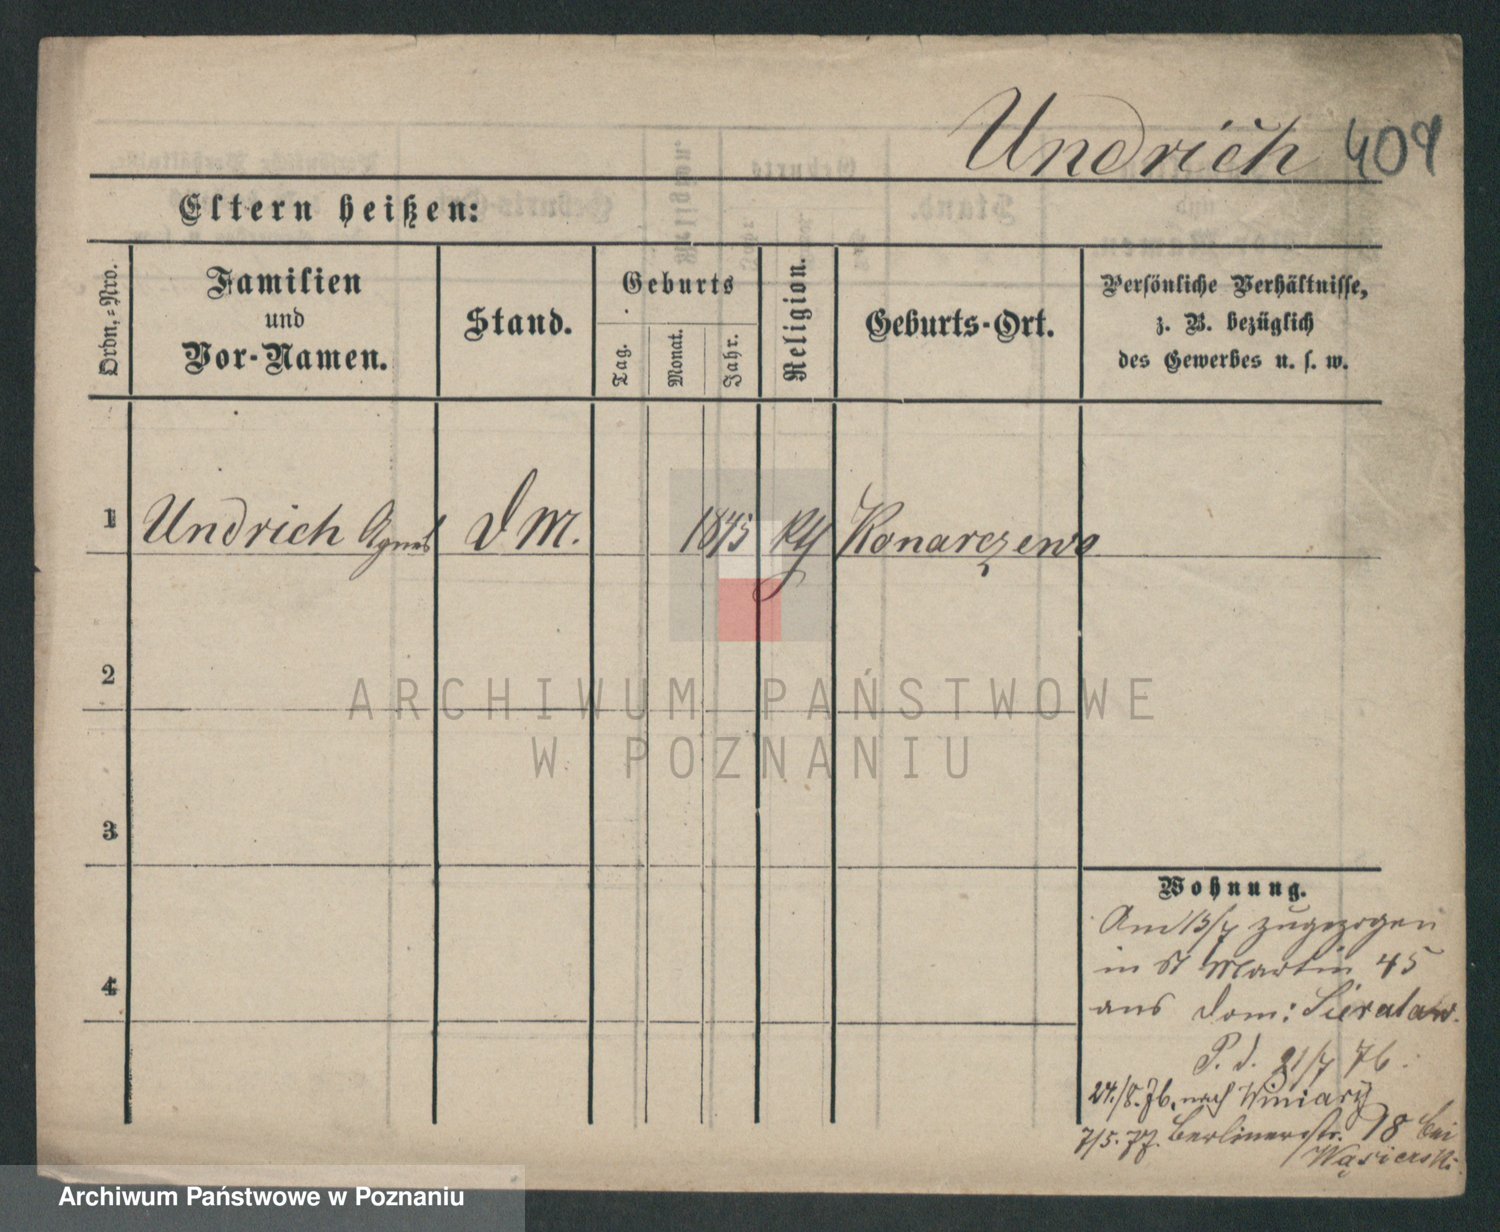 Undrich 409
Eltern heißen:
Ordn.-Nro.
Familien
und
Vor-Namen.
Stand.
Geburts
Tag.
Monat.
Jahr.
Religion.
Geburts-Ort.
Persönliche Verhältnisse,
z. B. bezüglich
des Gewerbes u. s. w.
1 Undrich Agnes D M. 1875 Konarczewo
2
ARCHIWUM PAŃSTWOWE
W POZNANIU
3
Wohnung.
Am 13/7 zugezogen
in St Martin 45
4
aus Dom:
P. d. 21/7 76.
24./8. 76. nach Winiary
7/5. 77. Berlinerstr. 18 bei
Wąsierski
Archiwum Państwowe w Poznaniu